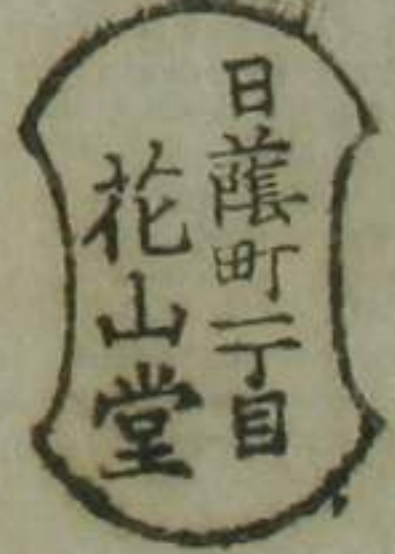 日蔭町一丁目
花山堂